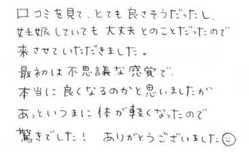 口コミを見て、とても良さそうだったし、
妊娠していても大丈夫とのことだったので
来させていただきました。
最初は不思議な感覚で、
本当に良くなるのかと思いましたが
あっというまに体が軽くなったので
驚きでした！ ありがとうございました☺